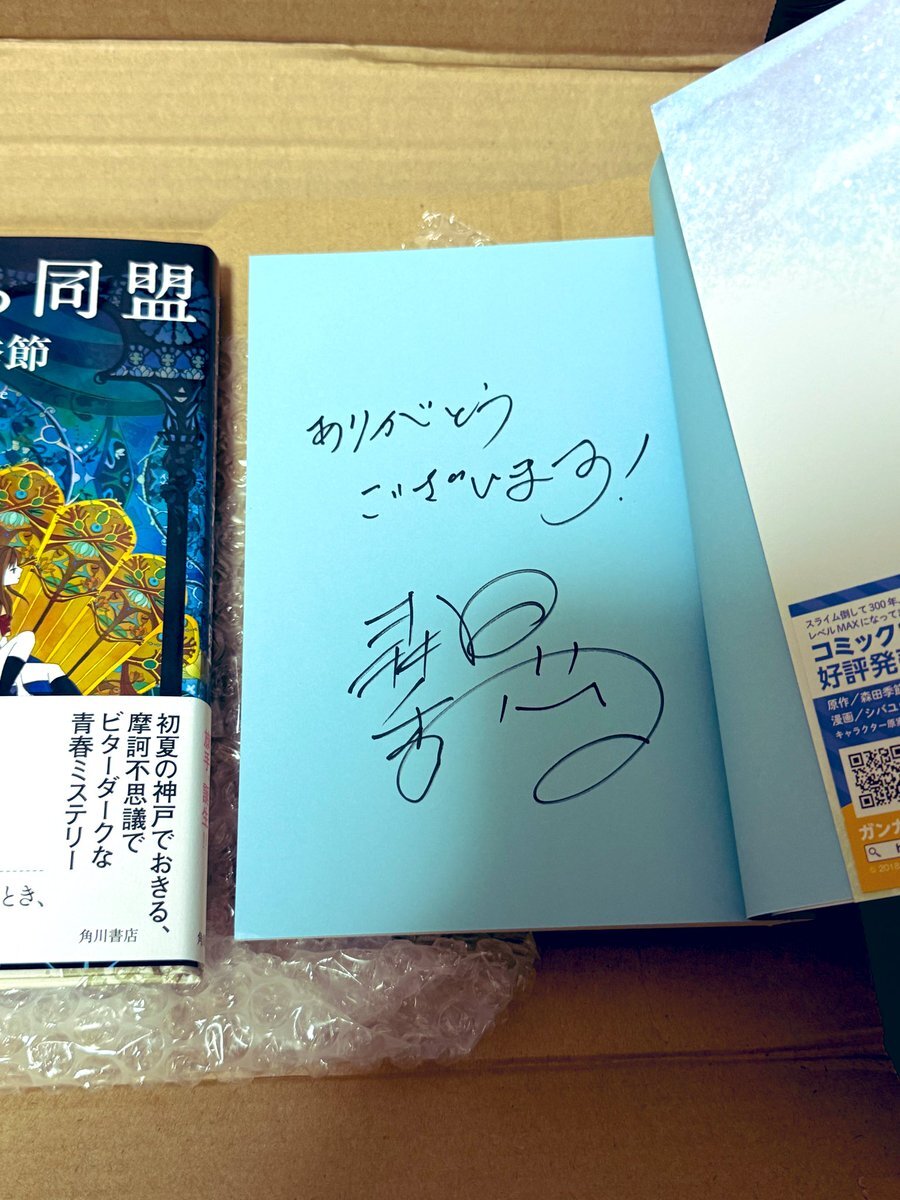 同盟
節
初夏の神戸でおきる、
摩訶不思議で
ビターダークな
青春ミステリー
とき、
角川書店
ありがとう
ございます!
森田
季節
スライム倒して300年、
レベルMAXになって
コミック
好評発
原作/森田季節
漫画/シバユ
キャラクター原
ガンガ
©2018